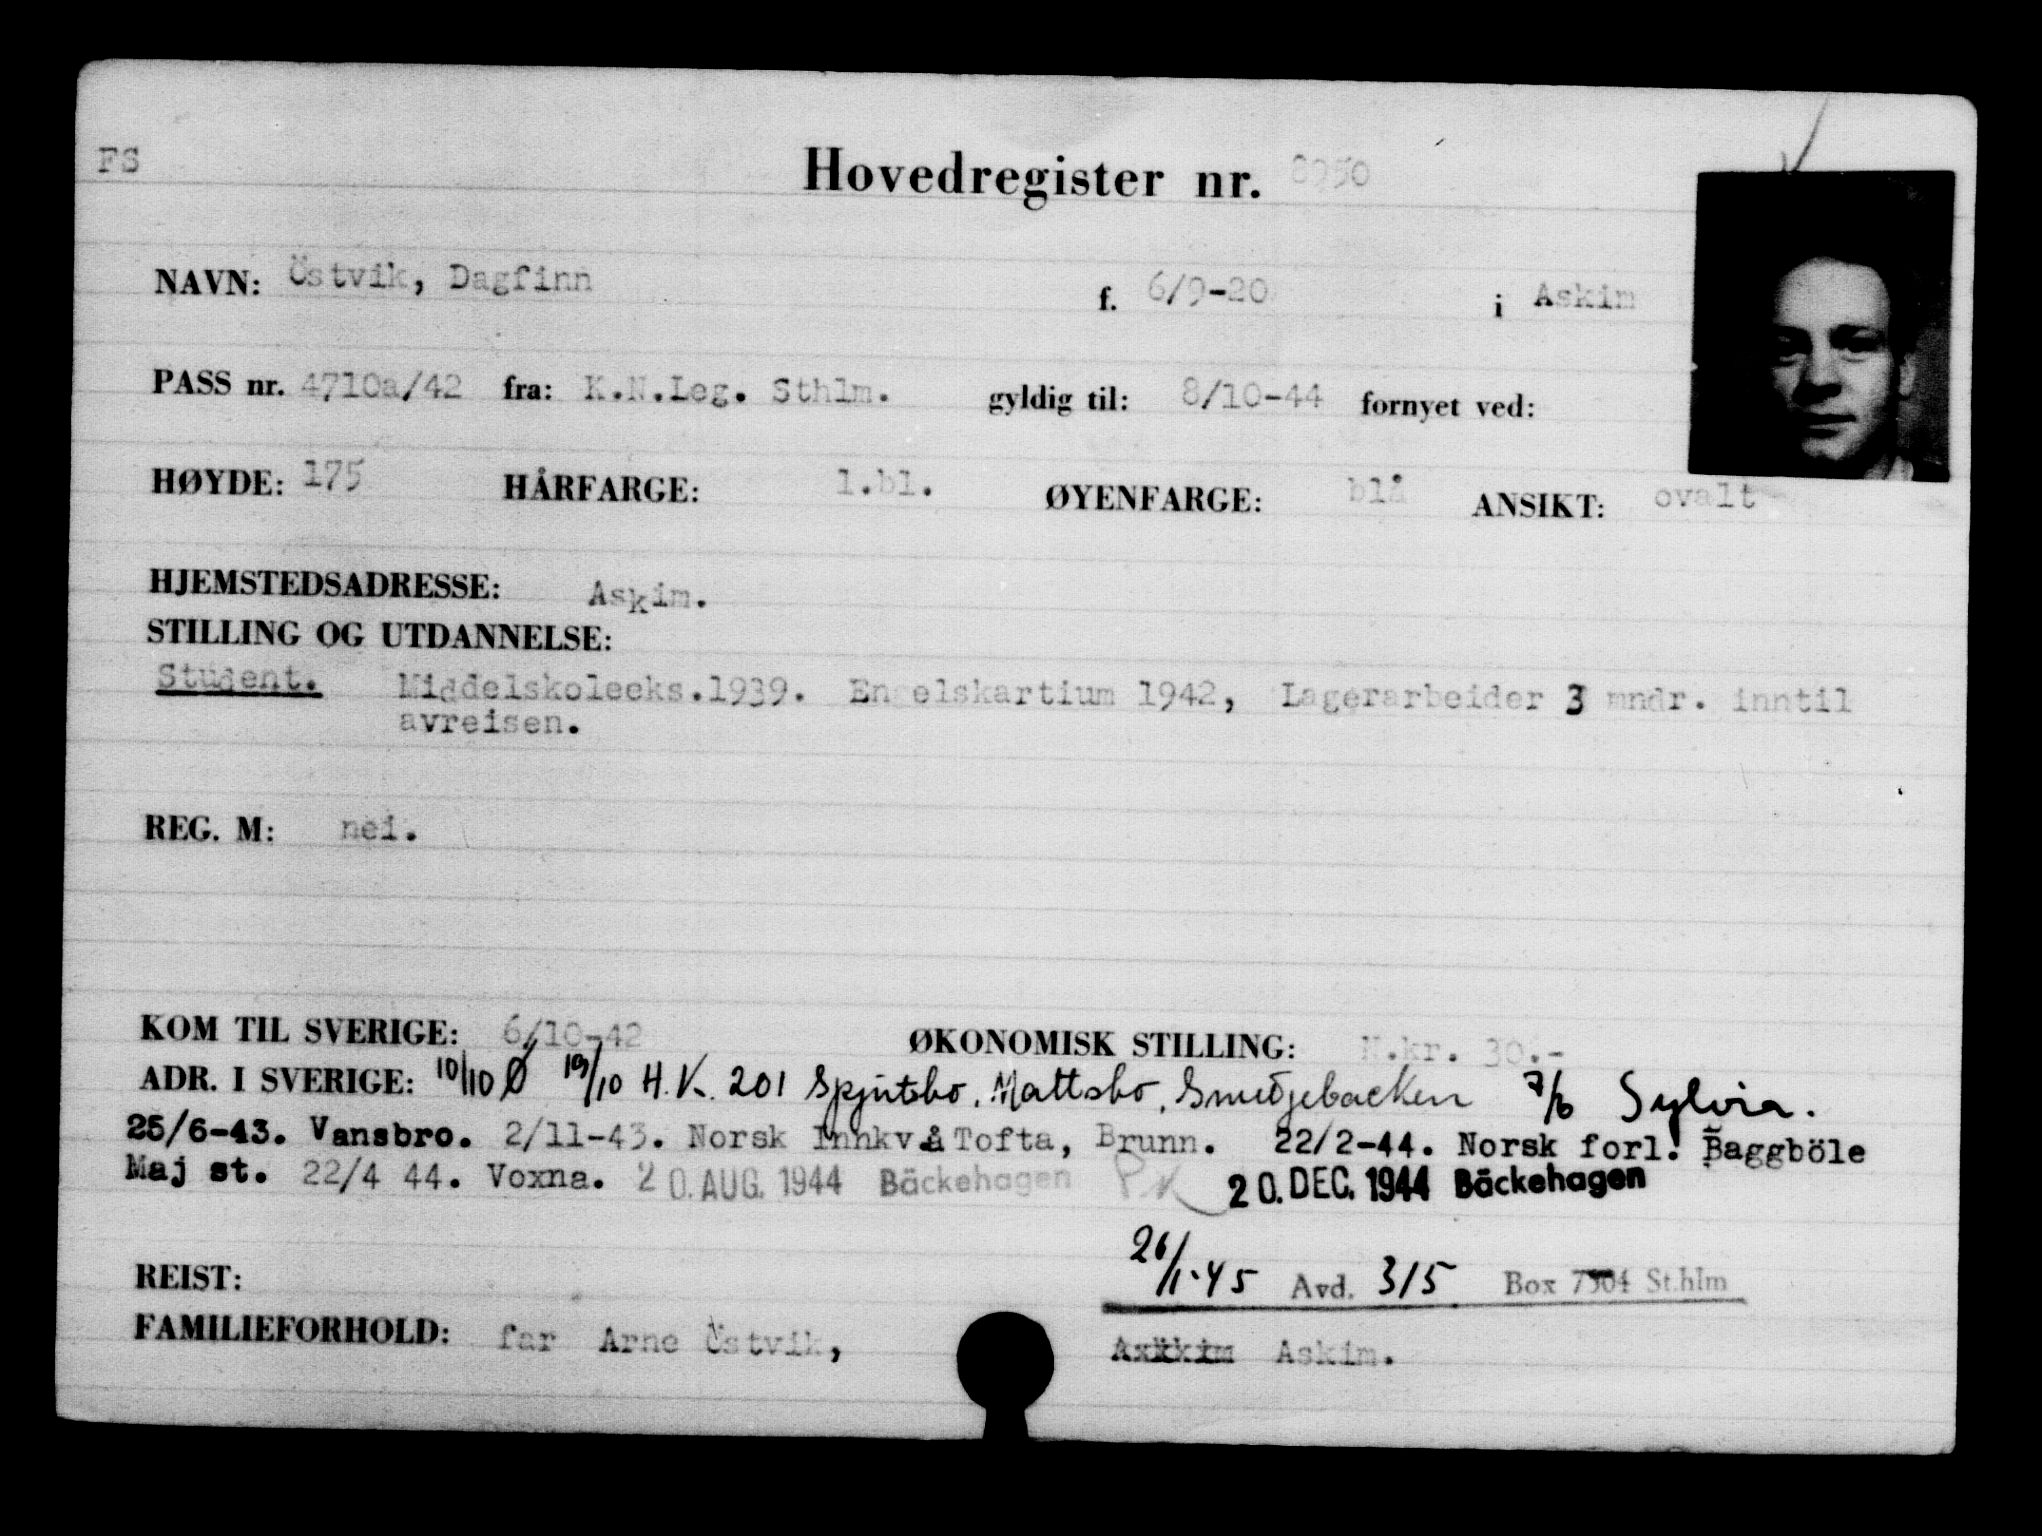 FS
Hovedregister nr.
NAVN: Östvik, Dagfinn f. 6/9-20 i Askim
PASS nr. 4710a/42 fra: K.N.Leg. Sthlm. gyldig til: 8/10-44 fornyet ved:
HØYDE: 175 HÅRFARGE: l.bl. ØYENFARGE: blå ANSIKT: ovalt
HJEMSTEDSADRESSE: Askim.
STILLING OG UTDANNELSE:
Student. Middelskoleeks.1939. Engelskartium 1942, Lagerarbeider 3 mndr. inntil
avreisen.
REG. M: nei.
KOM TIL SVERIGE: 6/10-42 ØKONOMISK STILLING: N.kr. 30.-
ADR. I SVERIGE: 10/10 Ø 19/10 H.K. 201 Spjutsbo, Mattsbo, Smedjebacken 7/6 Sylvia.
25/6-43. Vansbro. 2/11-43. Norsk Innkv.å Tofta, Brunn. 22/2-44. Norsk forl. Baggböle
Maj st. 22/4 44. Voxna. 20. AUG. 1944 Bäckehagen 20. DEC. 1944 Bäckehagen
26/1-45 Avd. 315 Box 7504 St.hlm
REIST:
FAMILIEFORHOLD: far Arne Östvik, Askim.